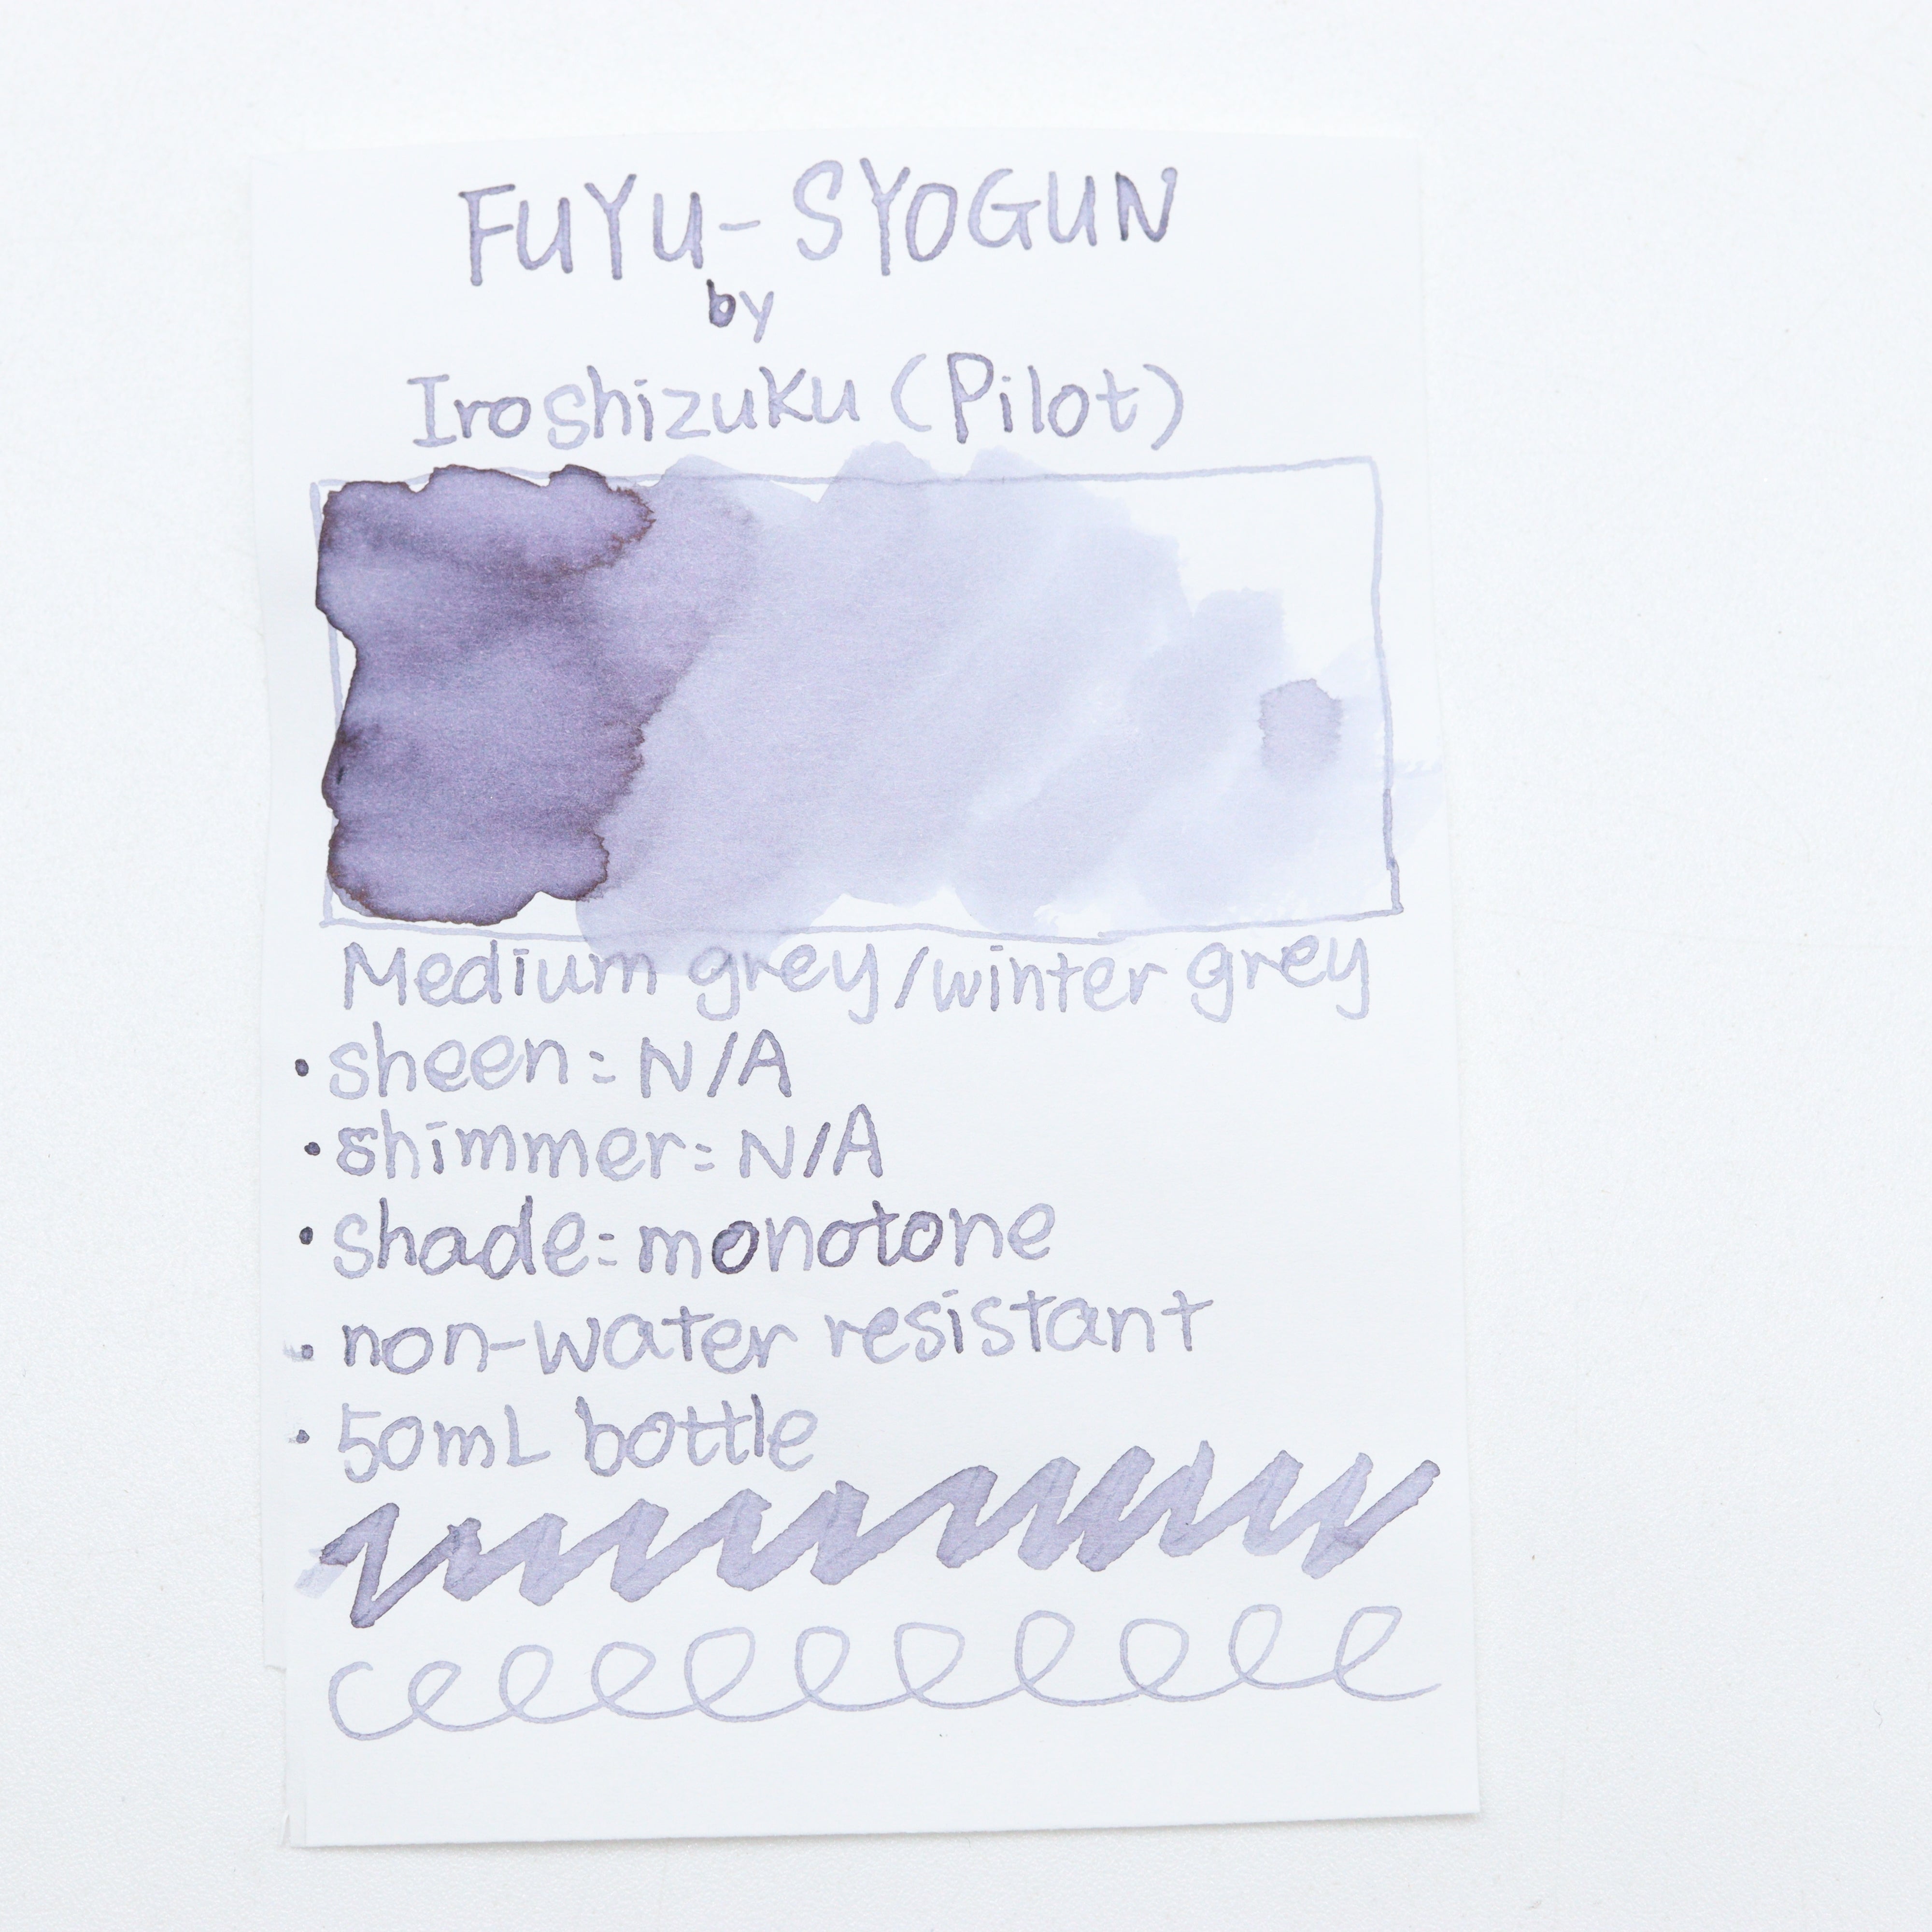 FUYU-SYOGUN
by
Iroshizuku (Pilot)
Medium grey/winter grey
• sheen: N/A
• shimmer: N/A
• shade: monotone
• non-water resistant
• 50mL bottle